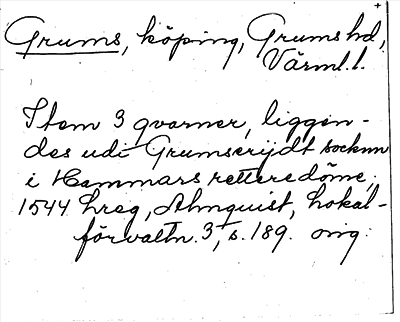 Grums, köping, Grums hd,
Värml. l.
Item 3 qvarner, liggen-
des udi Grumserijdt socknn
i Hammars retteredöme;
1544 hreg, Almquist, Lokal-
förvaltn. 3, s. 189. orig: